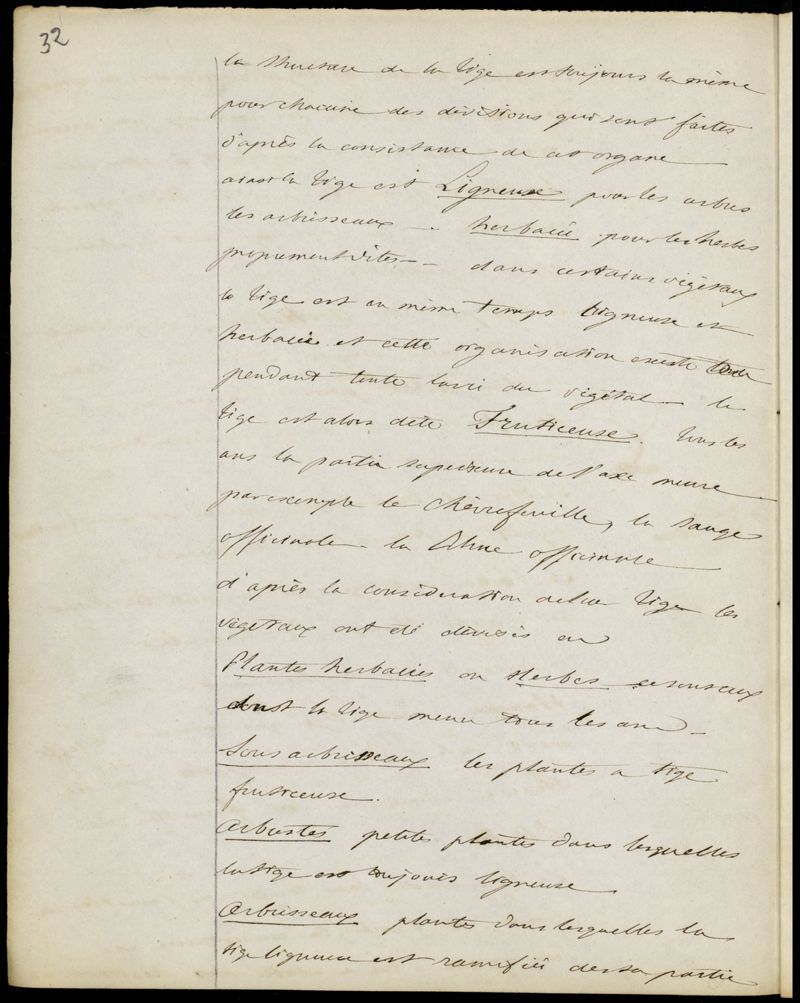 32
la structure de la tige est toujours la même
pour chacune des divisions qui sont faites
d'après la consistance de cet organe
ainsi la tige est Ligneuse pour les arbres
les arbrisseaux - herbacée pour les herbes
proprement dites - dans certains végétaux
la tige est en même temps ligneuse et
herbacée et cette organisation existe
pendant toute la vie du végétal - la
tige est alors dite Fruticeuse. tous les
ans la partie supérieure de l'axe meure
par exemple le chèvrefeuille, la sauge
officinale - la officinale
d'après la considération de la tige les
végétaux ont été divisés en
Plantes herbacées ou Herbes ce sont ceux
dont la tige meure tous les ans -
Sous arbrisseaux les plantes a tige
fruticeuse.
Arbustes petites plantes dans lesquelles
la tige est toujours ligneuse
Arbrisseaux plantes dans lesquelles la
tige ligneuse est ramifiée des sa partie